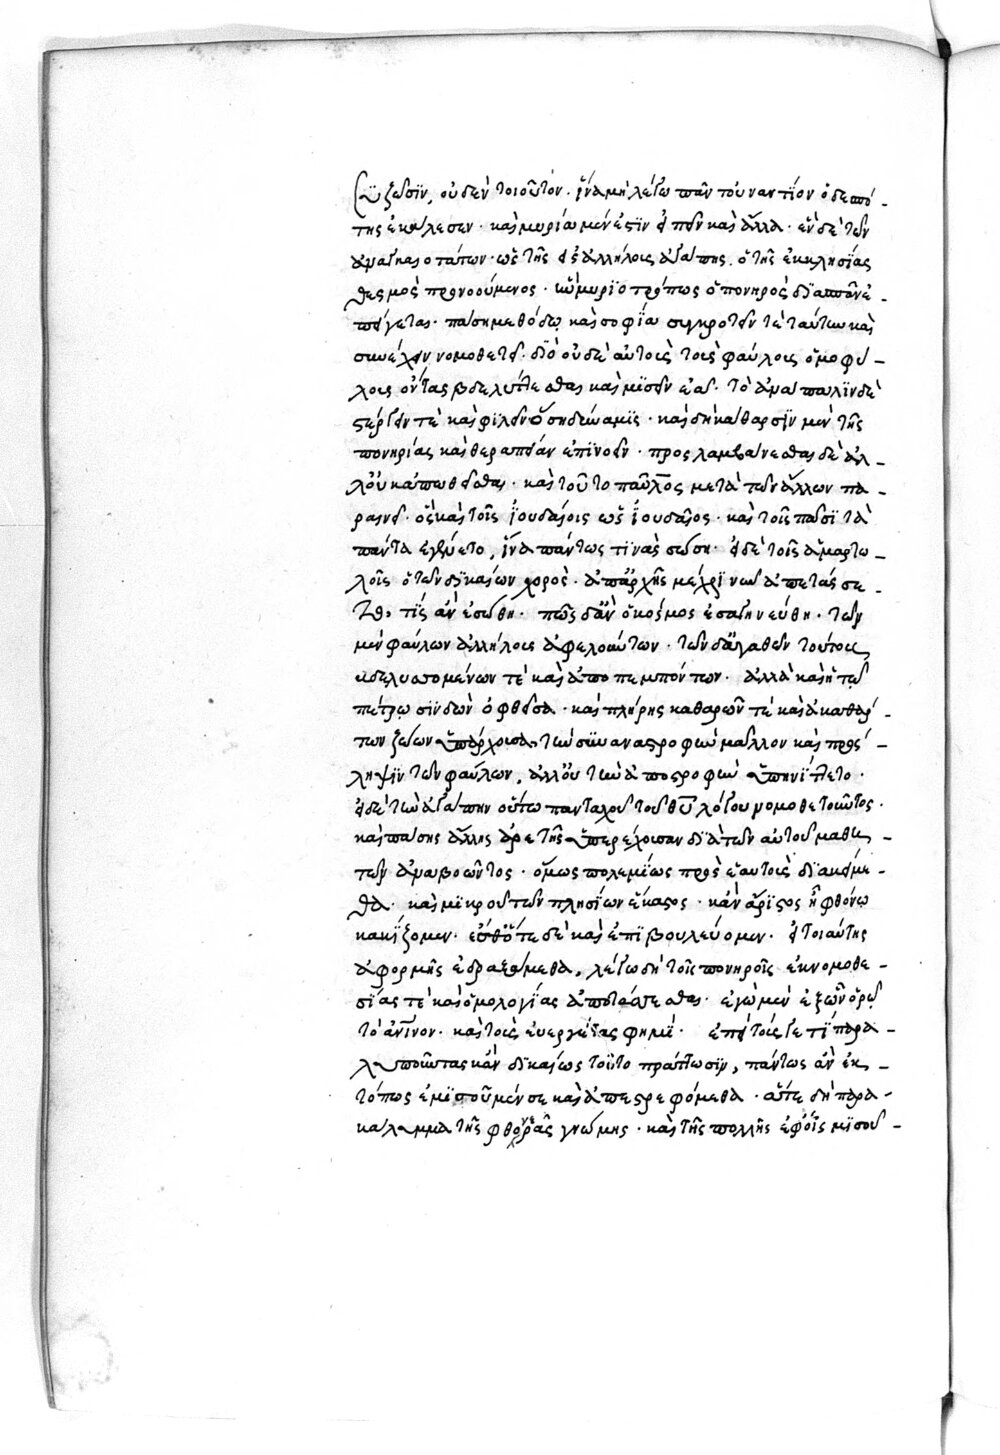 ζωσϊν, οὐδὲν τοιοῦτον. ἵνα μὴ λέγω πᾶν τοὐναντίον ὁ δεσπό-
της ἐκάλεσεν. καὶ μυρία μὲν ἐστὶν εἰπεῖν καὶ ἄλλα. ἓν δὲ τῶν
ἀναγκαιοτάτων. ὡς τῆς εἰς ἀλλήλοις ἀγάπης. ὁ τῆς ἐκκλησίας
θεσμὸς προνοούμενος. κἂν μυριοτρόπως ὁ πονηρὸς διασπᾶν ἐ-
πείγεται. πάση μεθόδω καὶ σοφία συγκροτεῖν τὲ ταύτην καὶ
συνέχειν νομοθετεῖ. διὸ οὐδὲ αὐτοῖς τοῖς φαύλοις ὁμοφύ-
λοις ὄντας βδελύττεσθαι καὶ μισεῖν ἐᾶ. τὸ ἀνάπαλϊν δὲ
στέργειν τὲ καὶ φιλεῖν ὅση δύναμις. καὶ δὴ κάθαρσϊν μὲν τῆς
πονηρίας καὶ θεραπείαν ἐπινοεῖν. προσλαμβάνεσθαι δὲ ἀλ-
λ' οὐκ ἀπωθεῖσθαι. καὶ τοῦτο παῦλος μετὰ τῶν ἄλλων πα-
ραινεῖ. ὃς καὶ τοῖς ἰουδαίοις ὡς ἰουδαῖος. καὶ τοῖς πᾶσι τὰ
πάντα ἐγένετο, ἵνα πάντως τινὰς σώση. εἰ δὲ τοῖς ἁμαρτω-
λοῖς ὁ τῶν δικαίων χορὸς. ἀπαρχῆς μέχρι νῦν ἀπετάσσε-
το, τίς ἂν ἐσώθη. πῶς δ' ἂν ὁ κόσμος ἐσαγηνεύθη. τῶν
μὲν φαύλων ἀλλήλοις ἀφελούντων. τῶν δ' ἀγαθῶν τούτοις
βδελυττομένων τὲ καὶ ἀποπεμπόντων. ἀλλὰ καὶ ἡ τῶ
πέτρω σινδὼν ὀφθεῖσα. καὶ πλήρης καθαρῶν τὲ καὶ ἀκαθάρ-
των ζώων ὑπάρχουσα, τὴν συναναστροφὴν μᾶλλον καὶ πρόσ-
ληψϊν τῶν φαύλων, ἀλλ' οὐ τὴν ἀποστροφὴν ὑπηνίττετο.
εἰ δὲ τὴν ἀγάπην οὕτω πανταχοῦ τοῦ θυ λόγου νομοθετοῦντος.
καὶ πάσης ἄλλης ἀρετῆς ὑπερέχουσαν διὰ τῶν αὐτοῦ μαθη-
τῶν ἀναβοῶντος. ὅμως πολεμίως πρὸς ἑαυτοὺς διακείμε-
θα. καὶ μικροῦ τὸν πλησίον ἕκαστος. κἂν ἄριστος ἦ φθόνω
κακίζομεν. ἔσθ' ὅτε δὲ καὶ ἐπιβουλεύομεν. εἰ τοιαύτης
ἀφορμῆς ἐδραξάμεθα, λέγω δὴ τοῖς πονηροῖς ἐκ νομοθε-
σίας τὲ καὶ ὁμολογίας ἀποτάσσεσθαι. ἐγὼ μὲν ἐξ ὧν ὁρῶ
τὸ ἀνινον. καὶ τοὺς εὐεργέτας φημὶ. ἐπεί τοίγε τί παρα-
λυποῦντας κἂν δικαίως τοῦτο πράττωσϊν, πάντως ἂν ἐκ-
τόπως ἐμισοῦμεν σε καὶ ἀπεστρεφόμεθα. ἅτε δὴ παρα-
κάλυμμα τῆς φθονερᾶς γνώμης. καὶ τῆς πολλῆς ἐφ' οἷς μισοῦ-